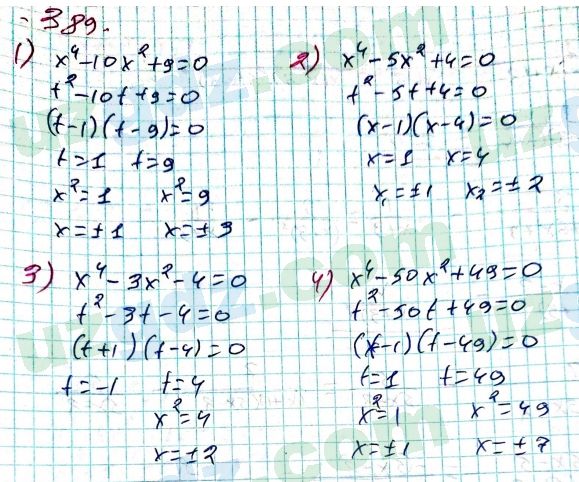 389.
1) x⁴-10x²+9=0
t²-10t+9=0
(t-1)(t-9)=0
t=1 t=9
x²=1 x²=9
x=±1 x=±3
2) x⁴-5x²+4=0
t²-5t+4=0
(x-1)(x-4)=0
x=1 x=4
x₁=±1 x₂=±2
3) x⁴-3x²-4=0
t²-3t-4=0
(t+1)(t-4)=0
t=-1 t=4
x²=4
x=±2
4) x⁴-50x²+49=0
t²-50t+49=0
(t-1)(t-49)=0
t=1 t=49
x²=1 x²=49
x=±1 x=±7